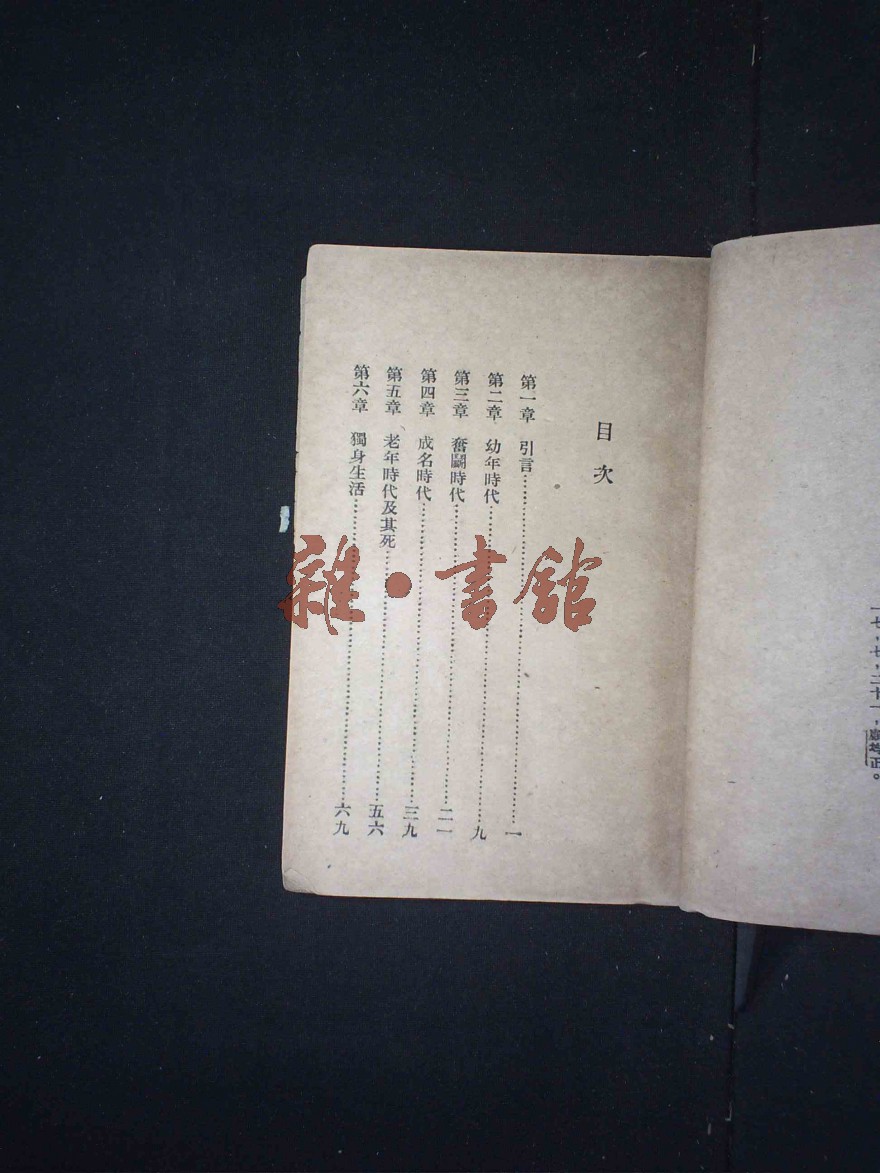 一七，七，二十一，
正。
目次
第一章 引言……一
第二章 幼年時代……九
第三章 奮鬭時代……二一
第四章 成名時代……三九
第五章 老年時代及其死……五六
第六章 獨身生活……六九
雜·書館